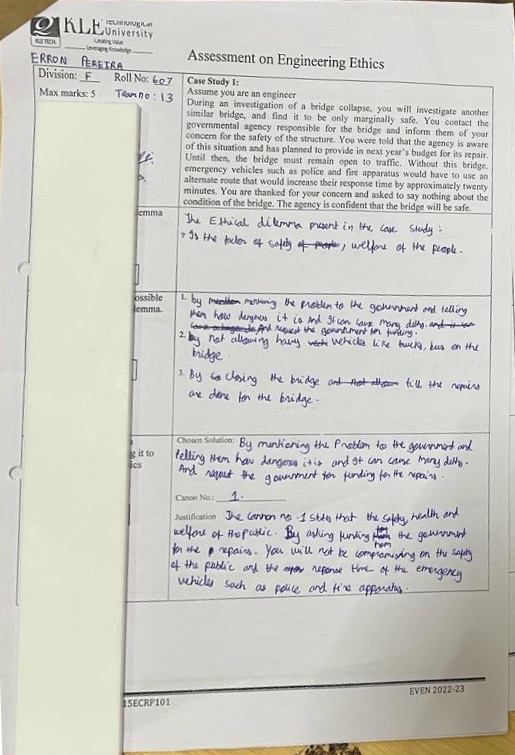 KLE Technological University
KLE TECH.
Creating Value
Leveraging Knowledge
Assessment on Engineering Ethics
ERRON PEREIRA
Division: F Roll No: 607
Max marks: 5 Team no: 13
Case Study 1:
Assume you are an engineer
During an investigation of a bridge collapse, you will investigate another
similar bridge, and find it to be only marginally safe. You contact the
governmental agency responsible for the bridge and inform them of your
concern for the safety of the structure. You were told that the agency is aware
of this situation and has planned to provide in next year's budget for its repair.
Until then, the bridge must remain open to traffic. Without this bridge,
emergency vehicles such as police and fire apparatus would have to use an
alternate route that would increase their response time by approximately twenty
minutes. You are thanked for your concern and asked to say nothing about the
condition of the bridge. The agency is confident that the bridge will be safe.
emma
The Ethical dilemma present in the case study :
→ Is the factor of safety of people, welfare of the people.
ossible
lemma.
1. by mention mentioning the problem to the government and telling
them how dengrous it is and It can cause many deths. and it can
And request the government for funding.
2. by not allowing havy vehicles like trucks, bus on the
bridge.
3. By closing the bridge and not allow till the repairs
are done for the bridge.
g it to
ics
Chosen Solution: By mentioning the Problem to the government and
telling them how dengerous it is and It can cause many deths.
And request the government for funding for the repairs.
Canon No.: 1.
Justification The Cannon no. 1 states that the safety, health and
welfare of the public. By asking funding from the government
for the repairs. You will not be compramising on the safty
of the public and the reponse time of the emergency
vehicles such as police and fire apparatus.
15ECRP101
EVEN 2022-23